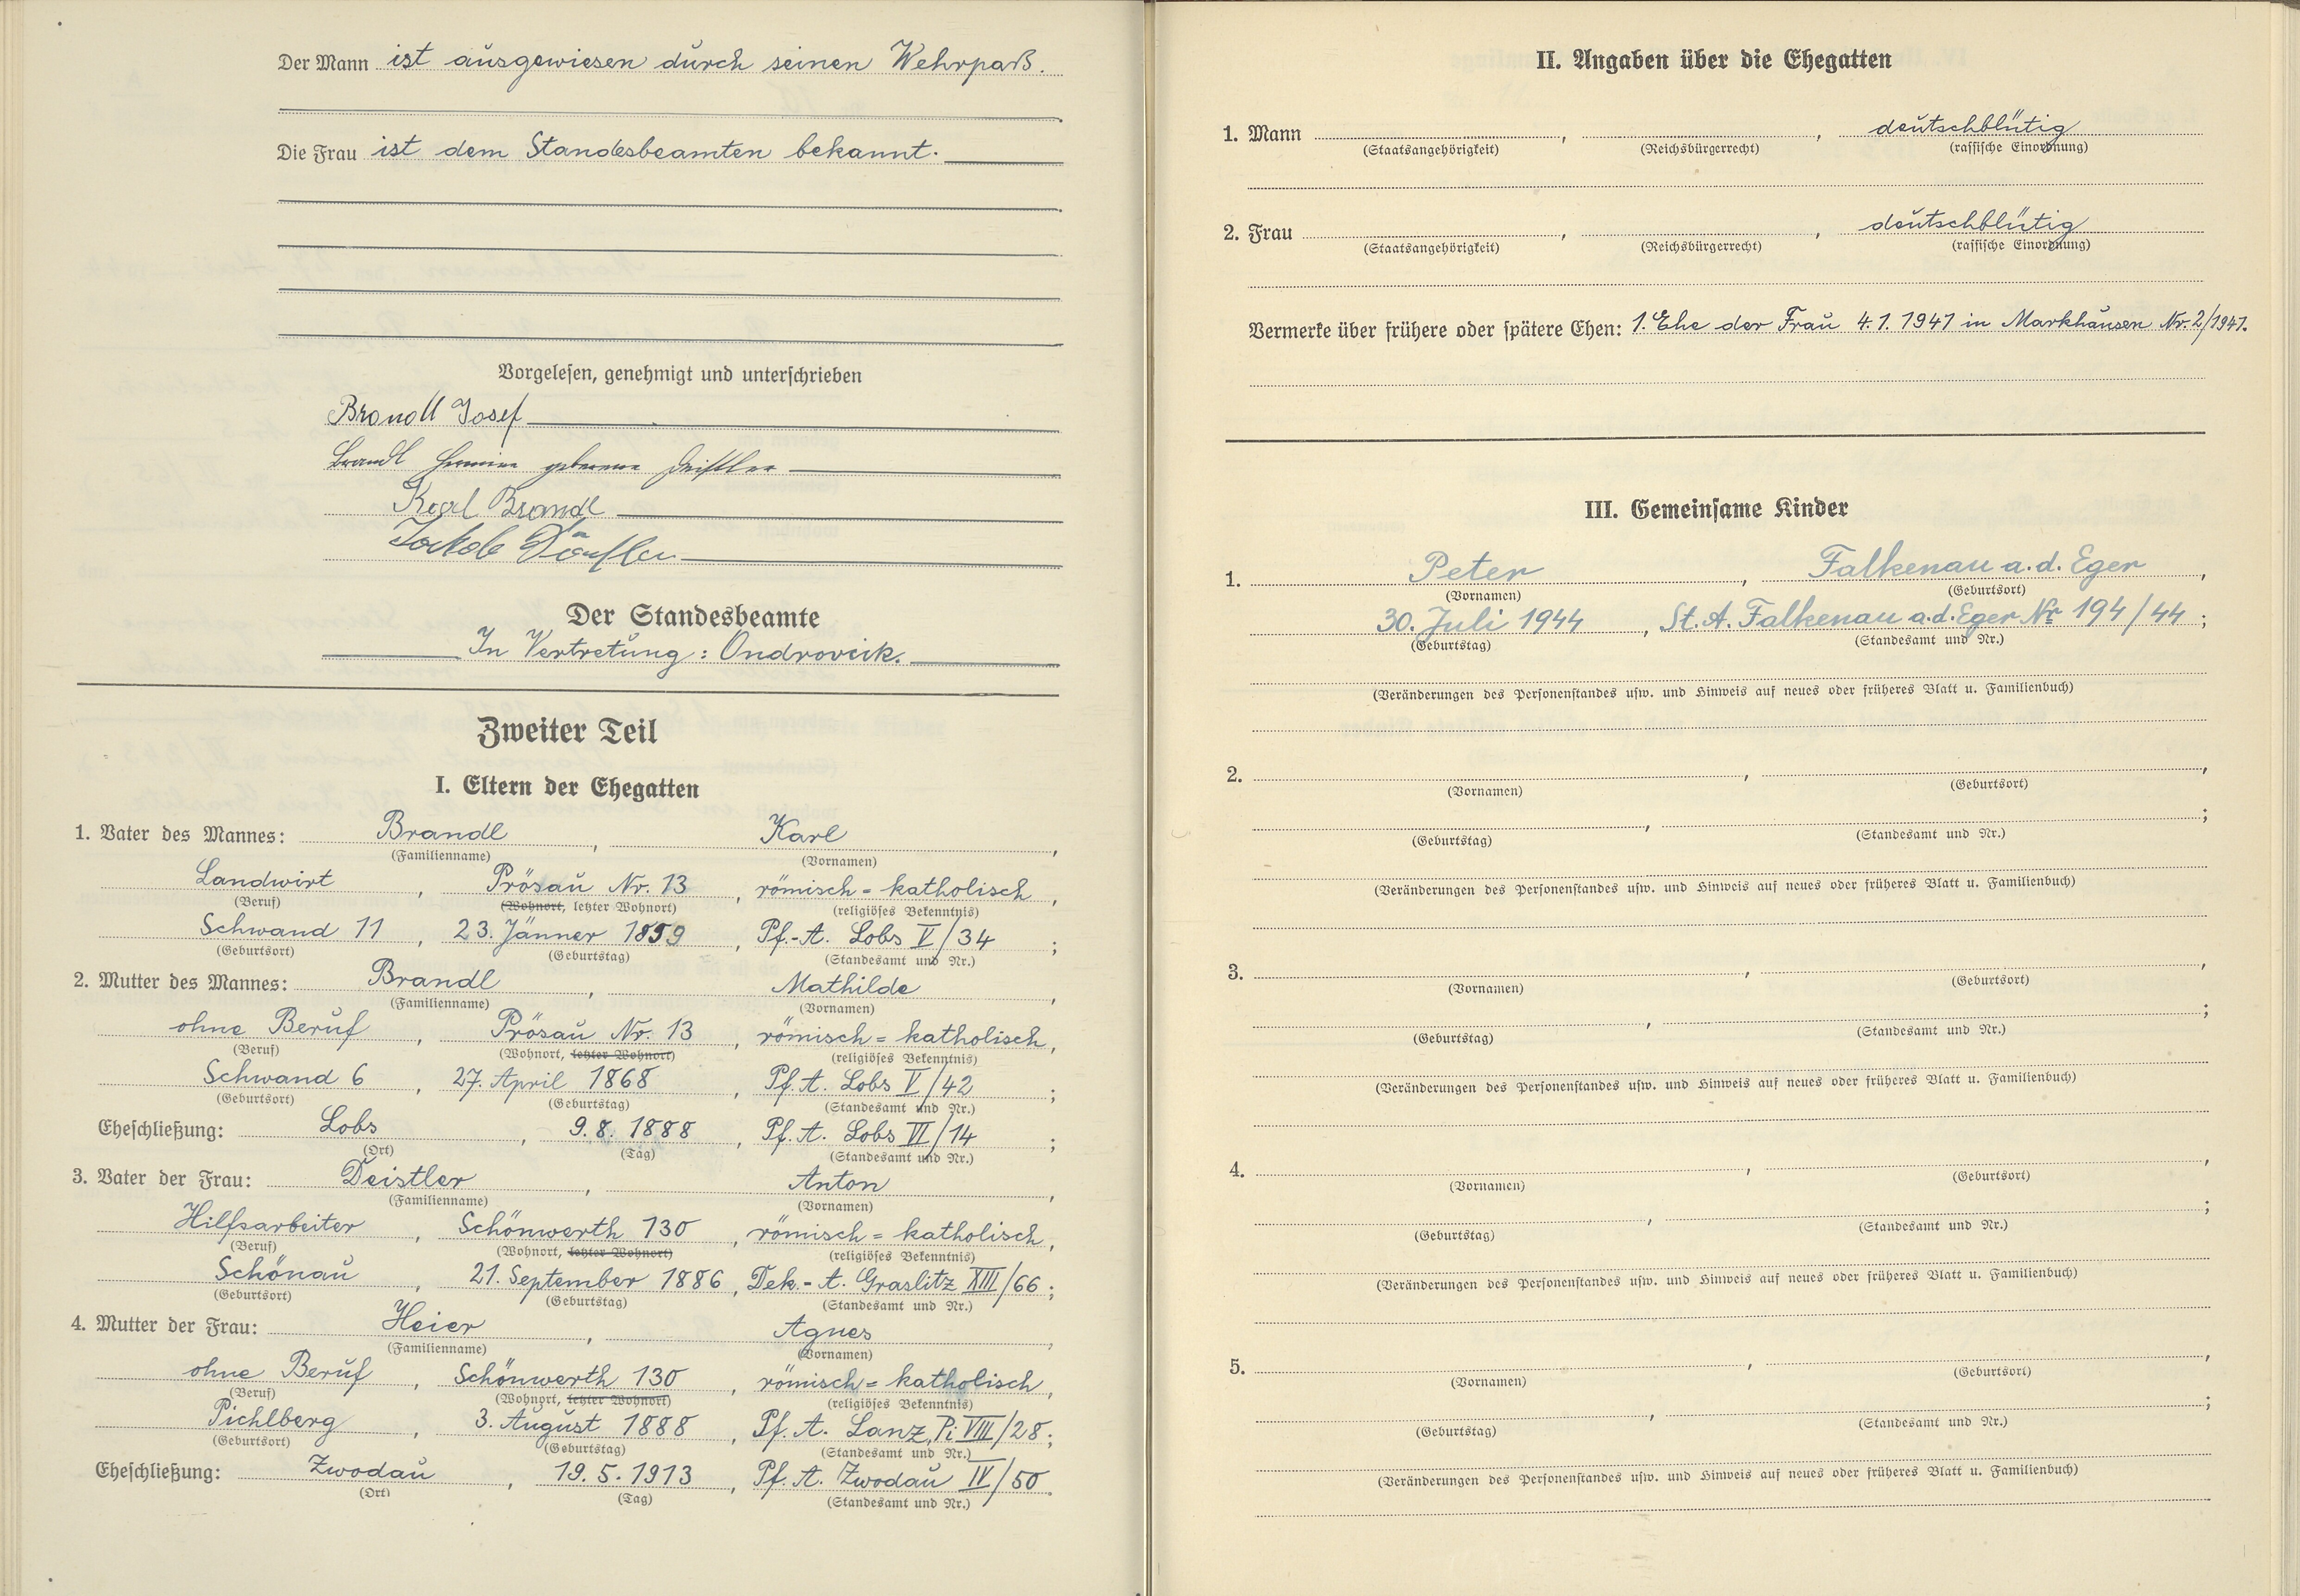 Der Mann ist ausgewiesen durch seinen Wehrpaß.
Die Frau ist dem Standesbeamten bekannt.
Vorgelesen, genehmigt und unterschrieben
Brandl Josef
Brandl Hermine geborene Deistler
Karl Brandl
Jakob
Der Standesbeamte
In Vertretung: Ondrovcik.
Zweiter Teil
I. Eltern der Ehegatten
1. Vater des Mannes: Brandl, Karl,
(Familienname) (Vornamen)
Landwirt, Prösau Nr. 13, römisch=katholisch,
(Beruf) (Wohnort, letzter Wohnort) (religiöses Bekenntnis)
Schwand 11, 23. Jänner 1859, Pf.-A. Lobs V/34;
(Geburtsort) (Geburtstag) (Standesamt und Nr.)
2. Mutter des Mannes: Brandl, Mathilde,
(Familienname) (Vornamen)
ohne Beruf, Prösau Nr. 13, römisch=katholisch,
(Beruf) (Wohnort, letzter Wohnort) (religiöses Bekenntnis)
Schwand 6, 27. April 1868, Pf.A. Lobs V/42;
(Geburtsort) (Geburtstag) (Standesamt und Nr.)
Eheschließung: Lobs, 9.8.1888, Pf.A. Lobs VI/14;
(Ort) (Tag) (Standesamt und Nr.)
3. Vater der Frau: Deistler, Anton,
(Familienname) (Vornamen)
Hilfsarbeiter, Schönwerth 130, römisch=katholisch,
(Beruf) (Wohnort, letzter Wohnort) (religiöses Bekenntnis)
Schönau, 21. September 1886, Dek.-A. Graslitz XIII/66;
(Geburtsort) (Geburtstag) (Standesamt und Nr.)
4. Mutter der Frau: Heier, Agnes,
(Familienname) (Vornamen)
ohne Beruf, Schönwerth 130, römisch=katholisch,
(Beruf) (Wohnort, letzter Wohnort) (religiöses Bekenntnis)
Pichlberg, 3. August 1888, Pf.A. Lanz, Pi VIII/28;
(Geburtsort) (Geburtstag) (Standesamt und Nr.)
Eheschließung: Zwodau, 19.5.1913, Pf.A. Zwodau IV/50.
(Ort) (Tag) (Standesamt und Nr.)
II. Angaben über die Ehegatten
1. Mann , , deutschblütig
(Staatsangehörigkeit) (Reichsbürgerrecht) (rassische Einordnung)
2. Frau , , deutschblütig
(Staatsangehörigkeit) (Reichsbürgerrecht) (rassische Einordnung)
Vermerke über frühere oder spätere Ehen: 1. Ehe der Frau 4.1.1941 in Markhausen Nr. 2/1941.
III. Gemeinsame Kinder
1. Peter, Falkenau a.d. Eger,
(Vornamen) (Geburtsort)
30. Juli 1944, St.A. Falkenau a.d. Eger Nr 194/44;
(Geburtstag) (Standesamt und Nr.)
(Veränderungen des Personenstandes usw. und Hinweis auf neues oder früheres Blatt u. Familienbuch)
2. , ,
(Vornamen) (Geburtsort)
, ;
(Geburtstag) (Standesamt und Nr.)
(Veränderungen des Personenstandes usw. und Hinweis auf neues oder früheres Blatt u. Familienbuch)
3. , ,
(Vornamen) (Geburtsort)
, ;
(Geburtstag) (Standesamt und Nr.)
(Veränderungen des Personenstandes usw. und Hinweis auf neues oder früheres Blatt u. Familienbuch)
4. , ,
(Vornamen) (Geburtsort)
, ;
(Geburtstag) (Standesamt und Nr.)
(Veränderungen des Personenstandes usw. und Hinweis auf neues oder früheres Blatt u. Familienbuch)
5. , ,
(Vornamen) (Geburtsort)
, ;
(Geburtstag) (Standesamt und Nr.)
(Veränderungen des Personenstandes usw. und Hinweis auf neues oder früheres Blatt u. Familienbuch)